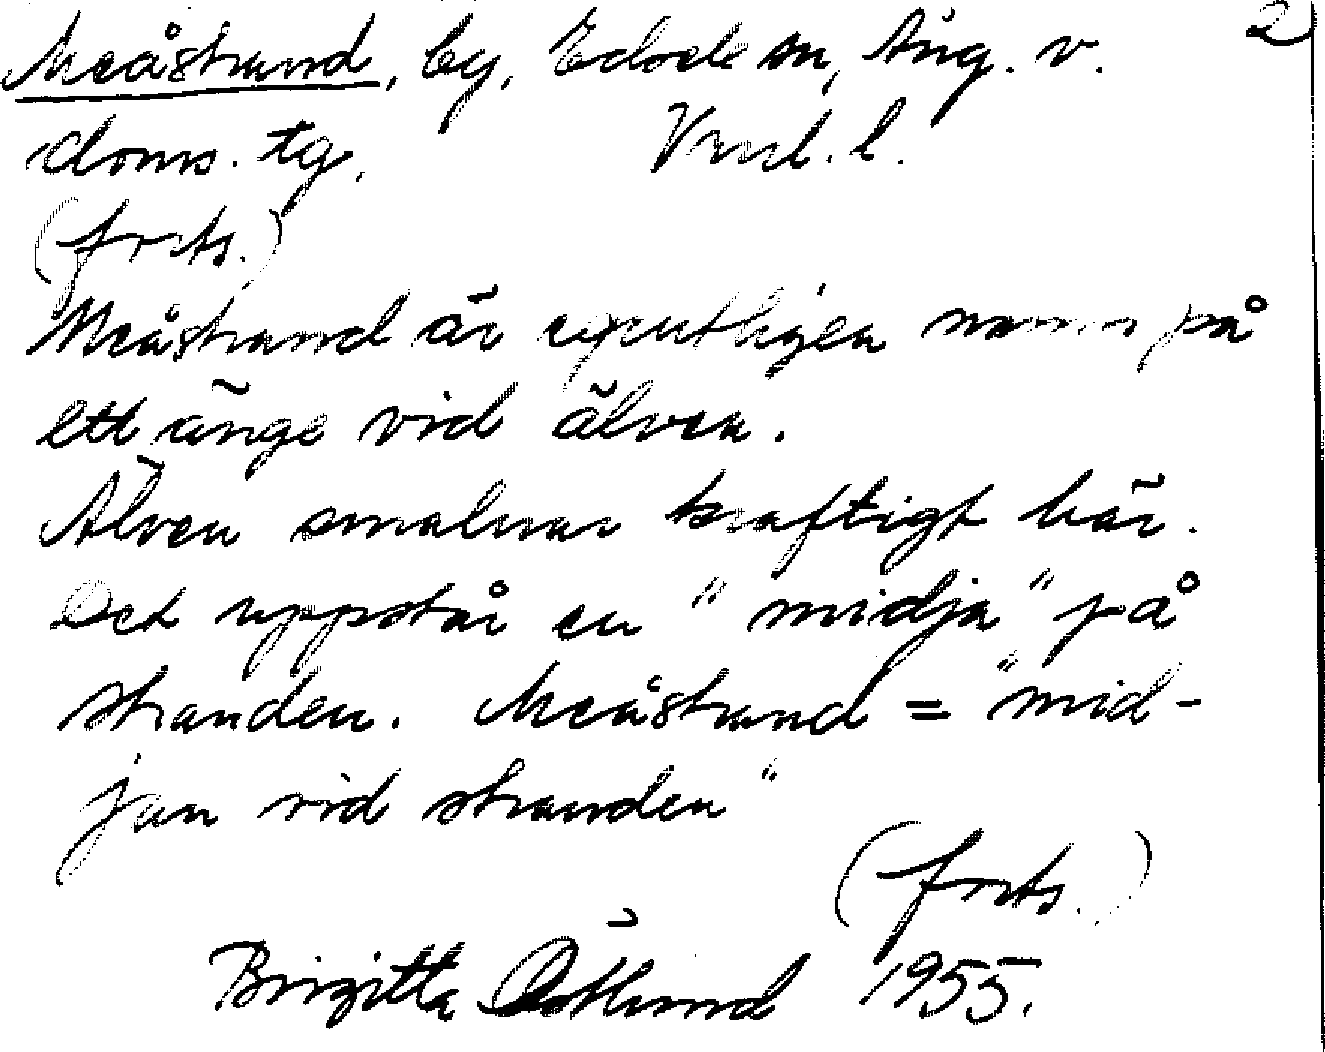 Meåstrand, by, Edsele sn, Ång. v. 2
doms. tg. Vnrl. l.
(forts.)
Meåstrand är egentligen namn på
ett änge vid älven.
Älven smalnar kraftigt här.
Det uppstår en "midja" på
stranden. Meåstrand = "mid-
jan vid stranden"
(forts.)
Birgitta Östlund 1955.